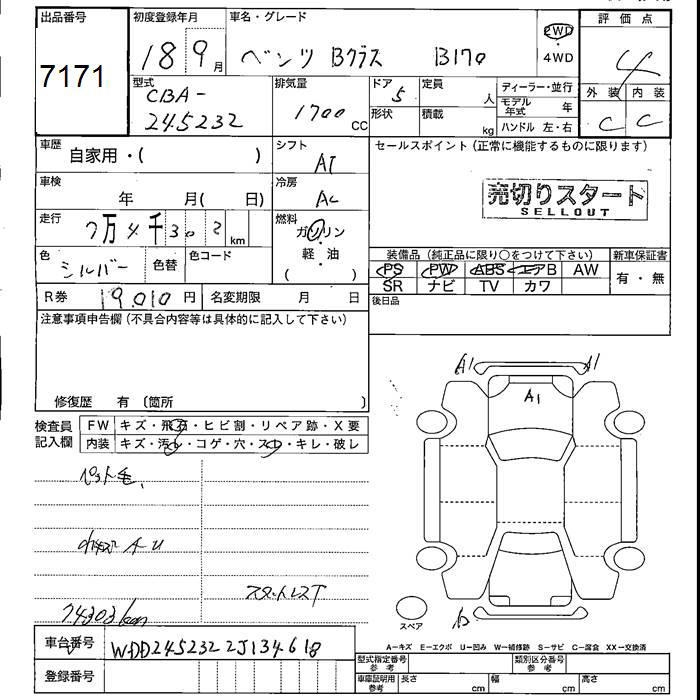 出品番号
7171
初度登録年月
18 9月
車名・グレード
ベンツ Bクラス B170
2WD
4WD
評価点
4
外装 内装
C C
型式
CBA-
245232
排気量
1700 CC
ドア
5
形状
定員
人
積載
kg
ディーラー・並行
モデル年式 年
ハンドル 左・右
車歴
自家用・( )
シフト
AT
セールスポイント(正常に機能するものに限ります)
売切りスタート
SELLOUT
車検
年 月( 日)
冷房
AC
走行
7万4千302 km
燃料
ガソリン・
軽・油
( )
色
シルバー
色替
色コード
装備品(純正品に限り○をつけて下さい)
PS PW ABS エアB AW
SR ナビ TV カワ
新車保証書
有・無
R券 19,010円
名変期限 月 日
後日品
注意事項申告欄(不具合内容等は具体的に記入して下さい)
修復歴 有 〔箇所 〕
検査員
記入欄
FW キズ・飛石・ヒビ割・リペア跡・X要
内装 キズ・汚れ・コゲ・穴・スレ・キレ・破レ
ペット毛、
小キズ AU
スタットレスT
74303km
A1 A1
A1
スペア
A=キズ E=エクボ U=凹み W=補修跡 S=サビ C=腐食 XX=交換済
車台番号
WDD2452322J134618
登録番号
型式指定番号
参考
類別区分番号
参考
車庫証明用
参考
長さ cm
幅 cm
高さ cm